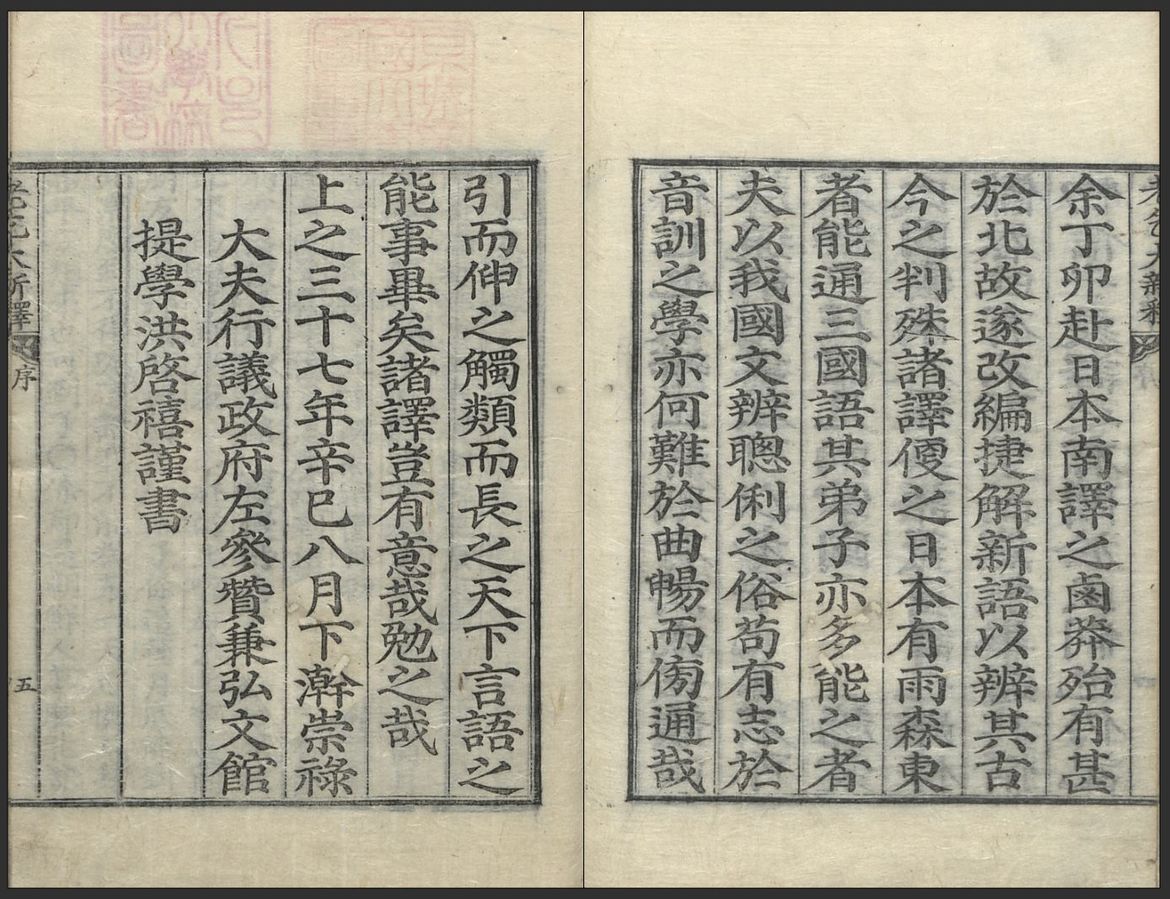 余丁卯赴日本南譯之鹵莽殆有甚
於北故遂改編捷解新語以辨其古
今之判殊諸譯便之日本有雨森東
者能通三國語其弟子亦多能之者
夫以我國文辨聰俐之俗苟有志於
音訓之學亦何難於曲暢而傍通哉
引而伸之觸類而長之天下言語之
能事畢矣諸譯豈有意哉勉之哉
上之三十七年辛巳八月下澣崇祿
大夫行議政府左參贊兼弘文館
提學洪啓禧謹書
老乞大新釋 序
五